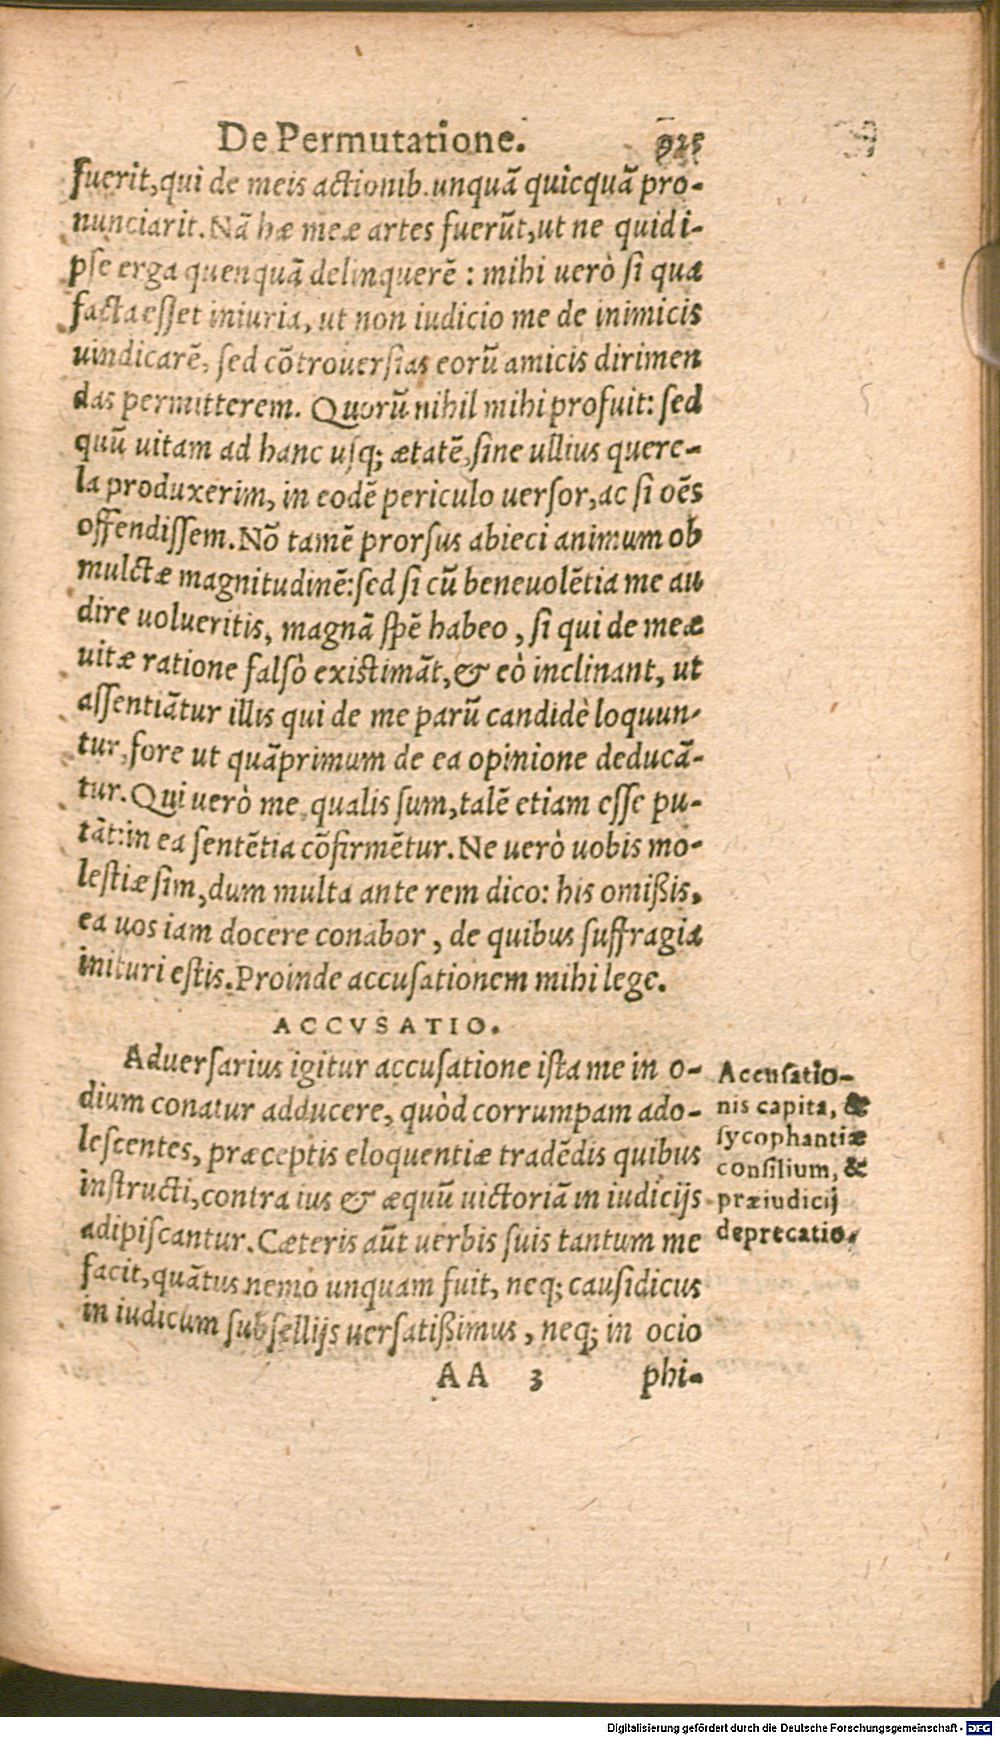 De Permutatione. 925
fuerit, qui de meis actionib. unquã quicquã pro-
nunciarit. Nã hæ meæ artes fuerũt, ut ne quid i-
pse erga quenquã delinquerẽ : mihi uerò si qua
facta esset iniuria, ut non iudicio me de inimicis
uindicarẽ, sed cõtrouersias eorũ amicis dirimen
das permitterem. Quorũ nihil mihi profuit: sed
quũ uitam ad hanc usq; ætatẽ, sine ullius quere-
la produxerim, in eodẽ periculo uersor, ac si oẽs
offendissem. Nõ tamẽ prorsus abieci animum ob
mulctæ magnitudinẽ: sed si cũ beneuolẽtia me au
dire uolueritis, magnã spẽ habeo, si qui de meæ
uitæ ratione falsò existimãt, & eò inclinant, ut
assentiãtur illis qui de me parũ candidè loquun-
tur, fore ut quãprimum de ea opinione deducã-
tur. Qui uerò me, qualis sum, talẽ etiam esse pu-
tãt: in ea sentẽtia cõfirmẽtur. Ne uerò uobis mo-
lestiæ sim, dum multa ante rem dico: his omißis,
ea uos iam docere conabor, de quibus suffragia
inituri estis. Proinde accusationem mihi lege.
ACCVSATIO.
Aduersarius igitur accusatione ista me in o-
dium conatur adducere, quòd corrumpam ado-
lescentes, præceptis eloquentiæ tradẽdis quibus
instructi, contra ius & æquũ uictoriã in iudicijs
adipiscantur. Cæteris aũt uerbis suis tantum me
facit, quãtus nemo unquam fuit, neq; causidicus
in iudicum subsellijs uersatißimus, neq; in ocio
AA 3 phi-
Accusatio-
nis capita, &
sycophantiæ
consilium, &
præiudicij
deprecatio.
Digitalisierung gefördert durch die Deutsche Forschungsgemeinschaft - DFG